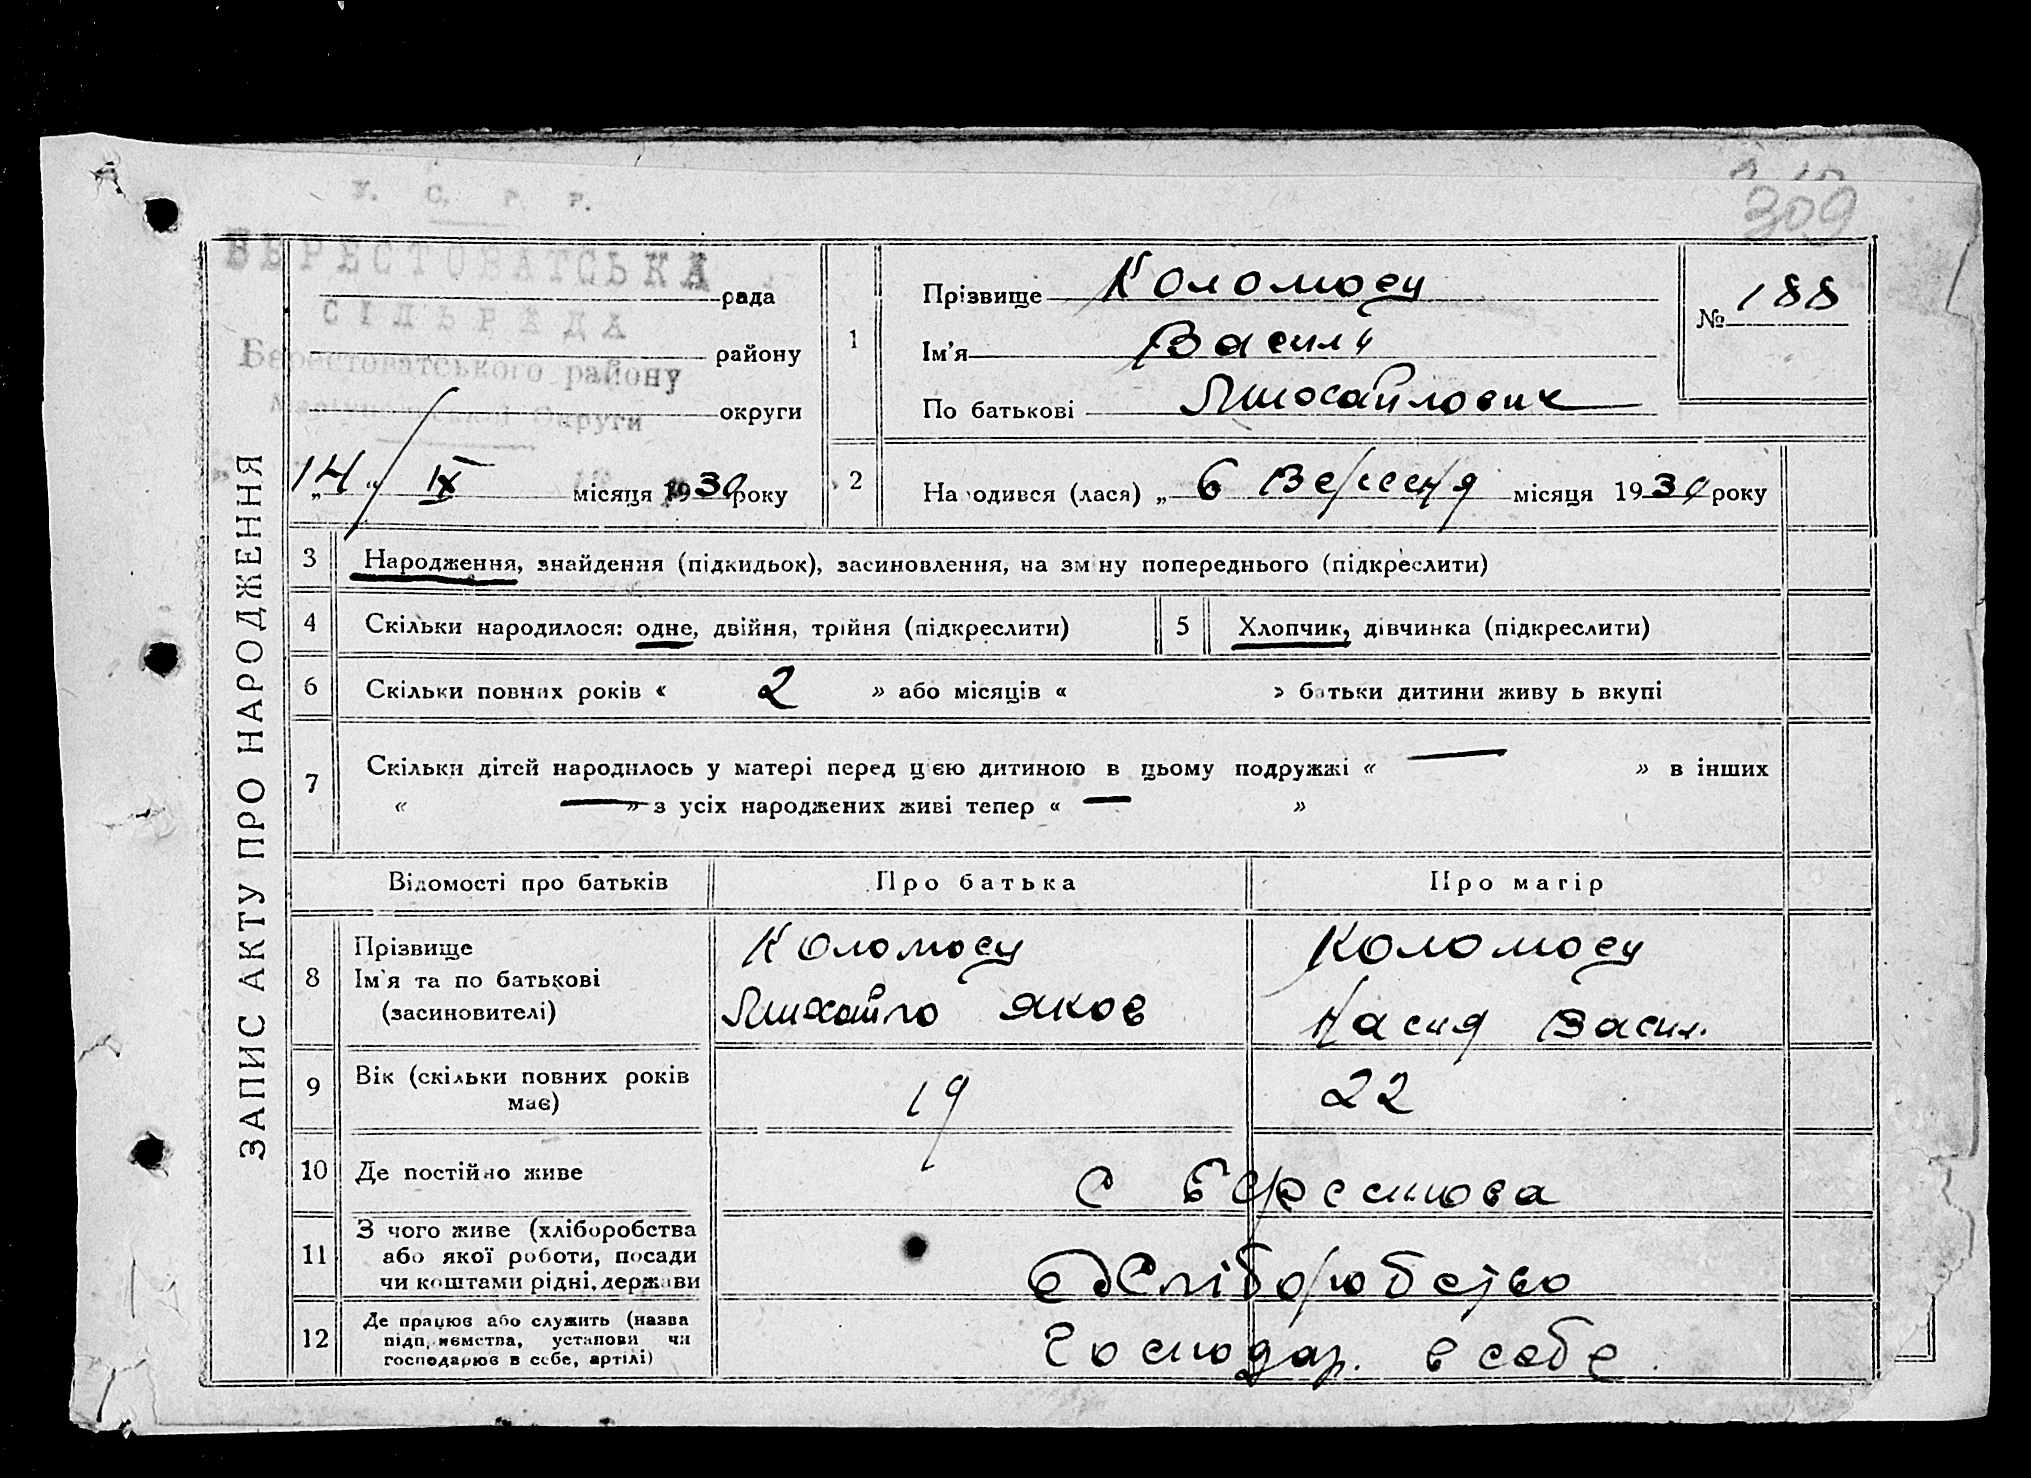 309
У. С. Р. Р.
БЕРЕСТОВАТСЬКА
рада
СІЛЬРАДА
району
Берестоватського району
округи
Округи
14 IX місяця 1930 року
ЗАПИС АКТУ ПРО НАРОДЖЕННЯ
1
Прізвище Коломоец
Ім'я Василь
По батькові Михайлович
№ 188
2
Народився (лася) „ 6 Вересня місяця 1930 року
3 Народження, знайдення (підкидьок), засиновлення, на зміну попереднього (підкреслити)
4 Скільки народилося: одне, двійня, трійня (підкреслити)
5 Хлопчик, дівчинка (підкреслити)
6 Скільки повних років « 2 » або місяців « » батьки дитини живуть вкупі
7 Скільки дітей народилось у матері перед цією дитиною в цьому подружжі « — » в інших
« — » з усіх народжених живі тепер « — »
Відомості про батьків Про батька Про матір
8 Прізвище
Ім'я та по батькові
(засиновителі)
Коломоец
Михайло Яков
Коломоец
Насия Васил.
9 Вік (скільки повних років
має)
19 22
10 Де постійно живе
с Берестова
11 З чого живе (хліборобства
або якої роботи, посади
чи коштами рідні, держави
Хліборобство
12 Де працює або служить (назва
підприємства, установи чи
господарює в себе, артілі)
Господар. в себе